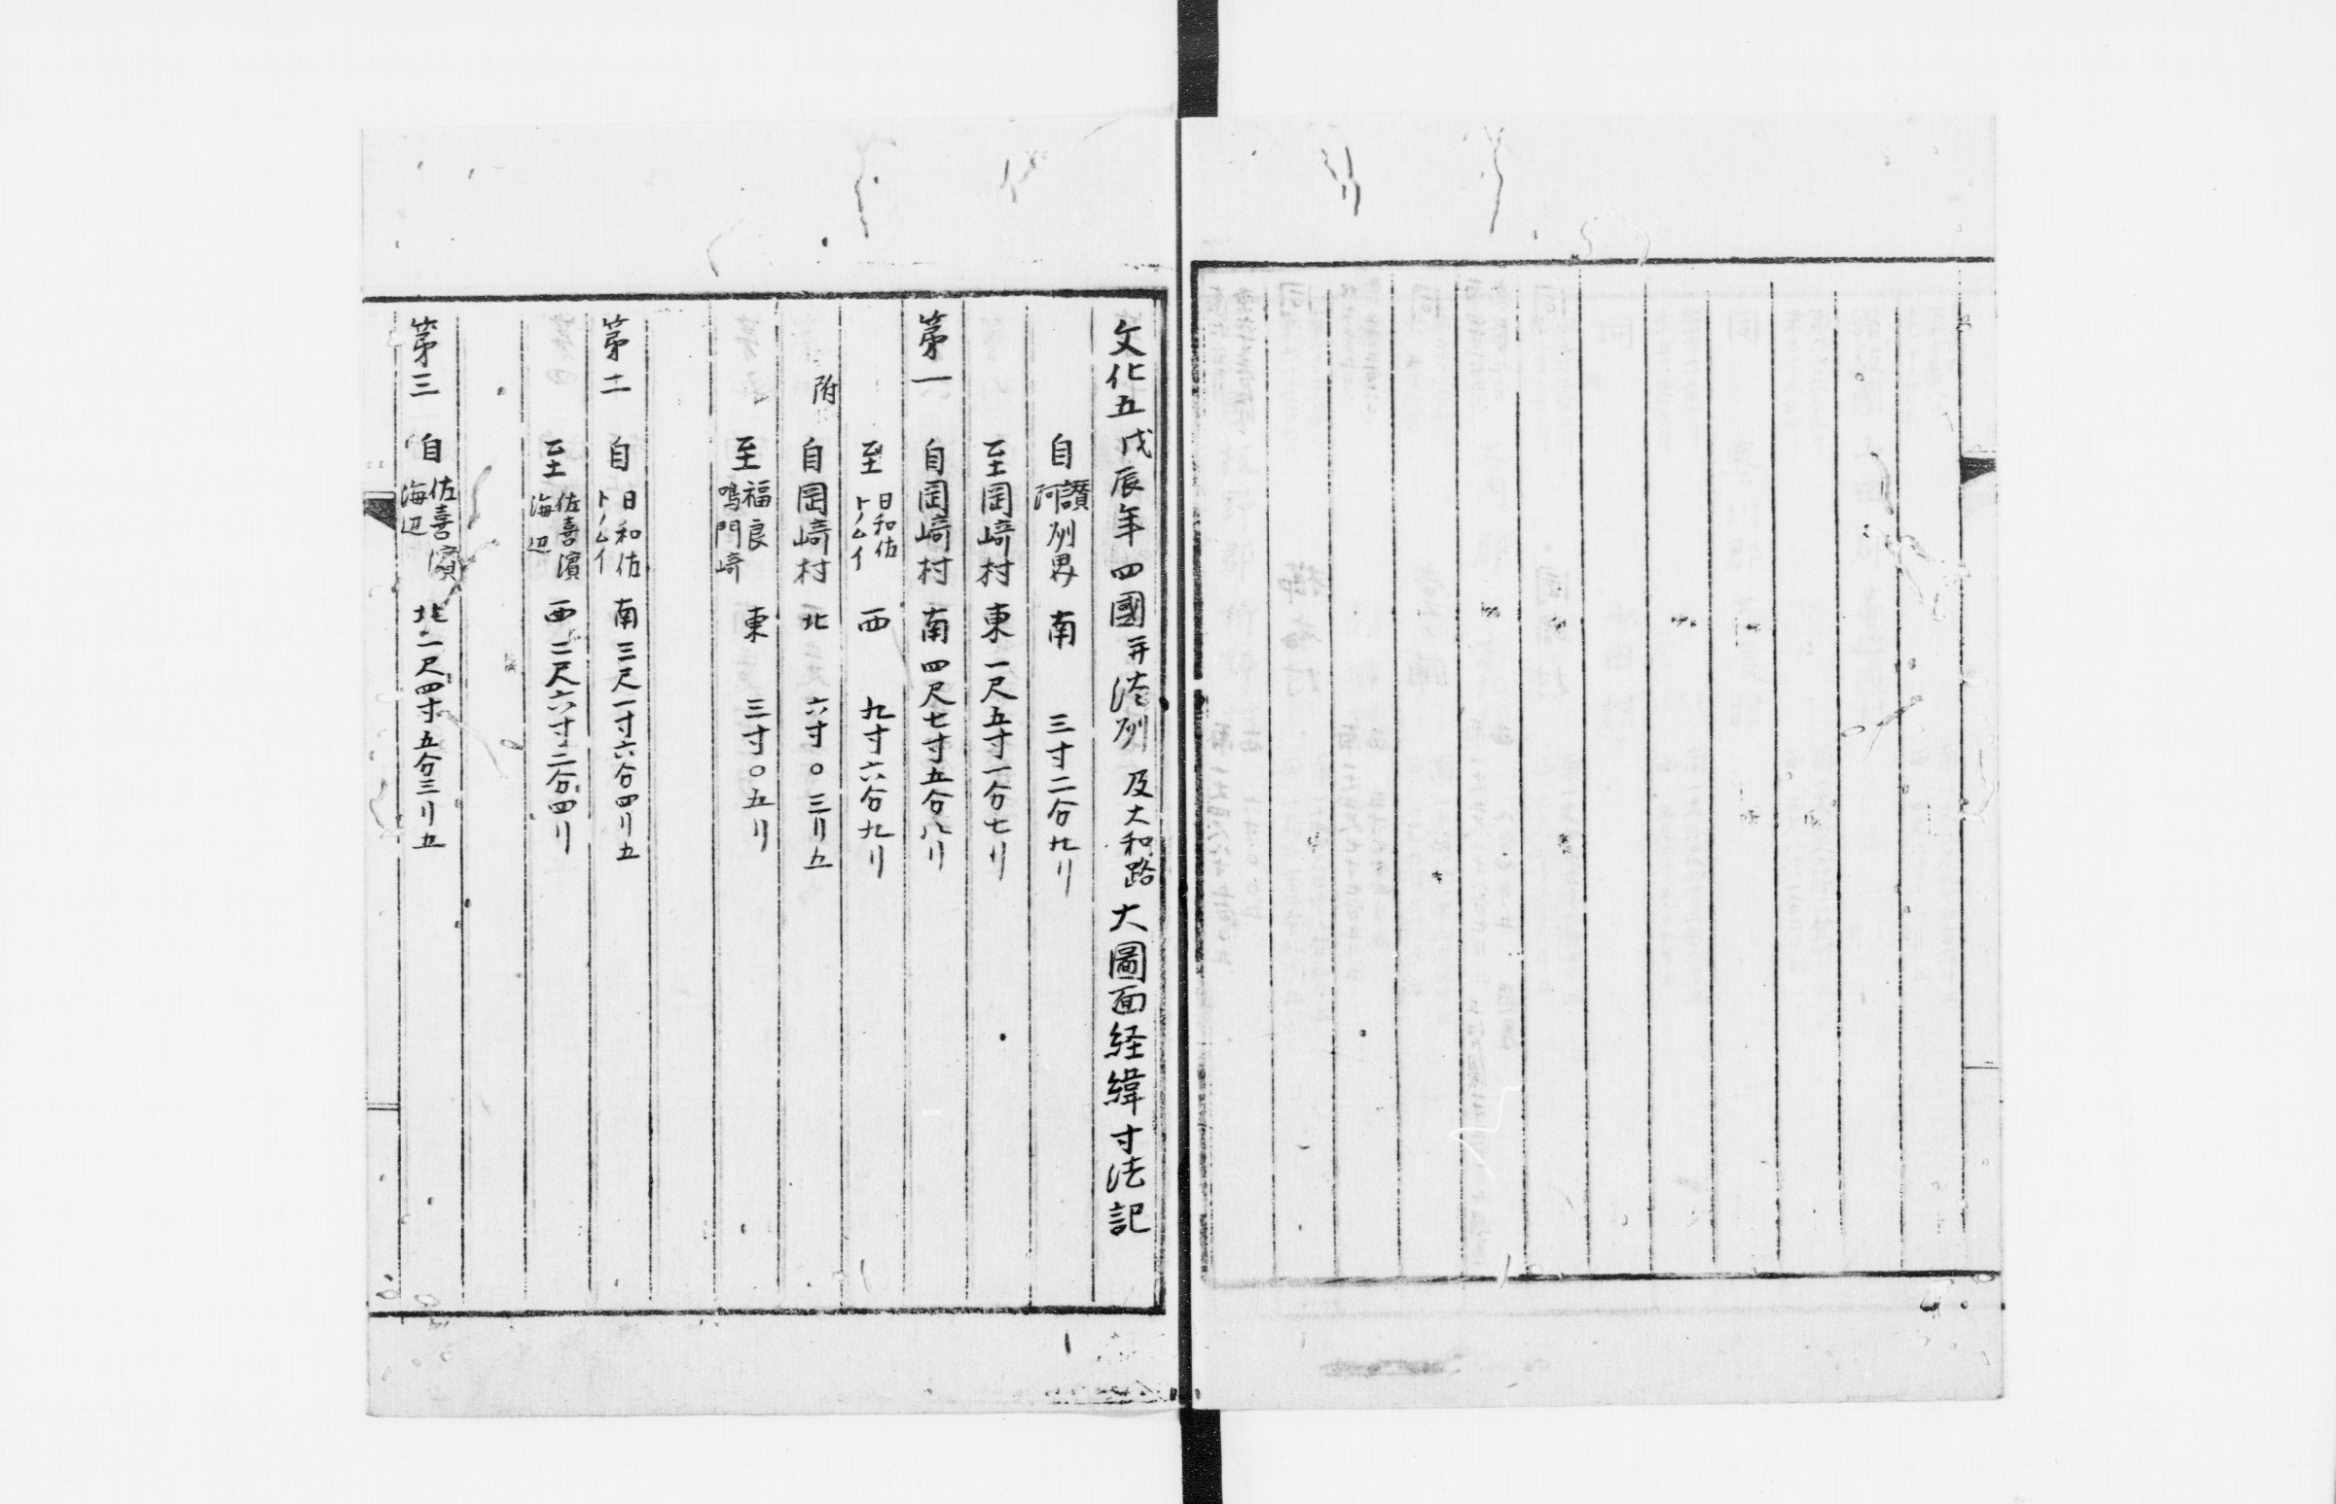 文化五戊辰年四國并淡州及大和路大圖面経緯寸法記
自讃阿州界 南 三寸二分九リ
至岡﨑村 東 一尺五寸一分七リ
第一 自岡﨑村 南 四尺七寸五分八リ
至日和佐トノムイ 西 九寸六分九リ
附 自岡﨑村 北 六寸〇三リ五
至福良鳴門﨑 東 三寸〇五リ
第二 自日和佐トノムイ 南 三尺一寸六分四リ五
至佐喜濱海辺 西 二尺六寸二分四リ
第三 自佐喜濱海辺 北 二尺四寸五分三リ五